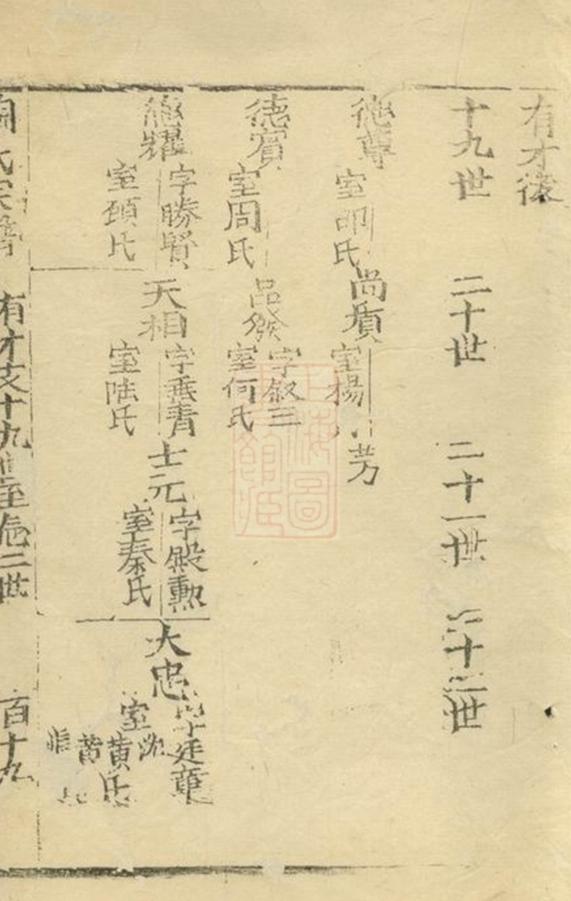 有才後
十九世 二十世 二十一世 二十二世
德尊 室邵氏 尚質 室楊 芳
德賓 室周氏 品發 字叙三 室何氏
德耀 字勝賢 室顧氏 天相 字垂青 室陆氏 士元 字殿勲 室秦氏 大忠 字廷章 室沈黄氏
氏宗譜 有才支十九世至 二世 百十九